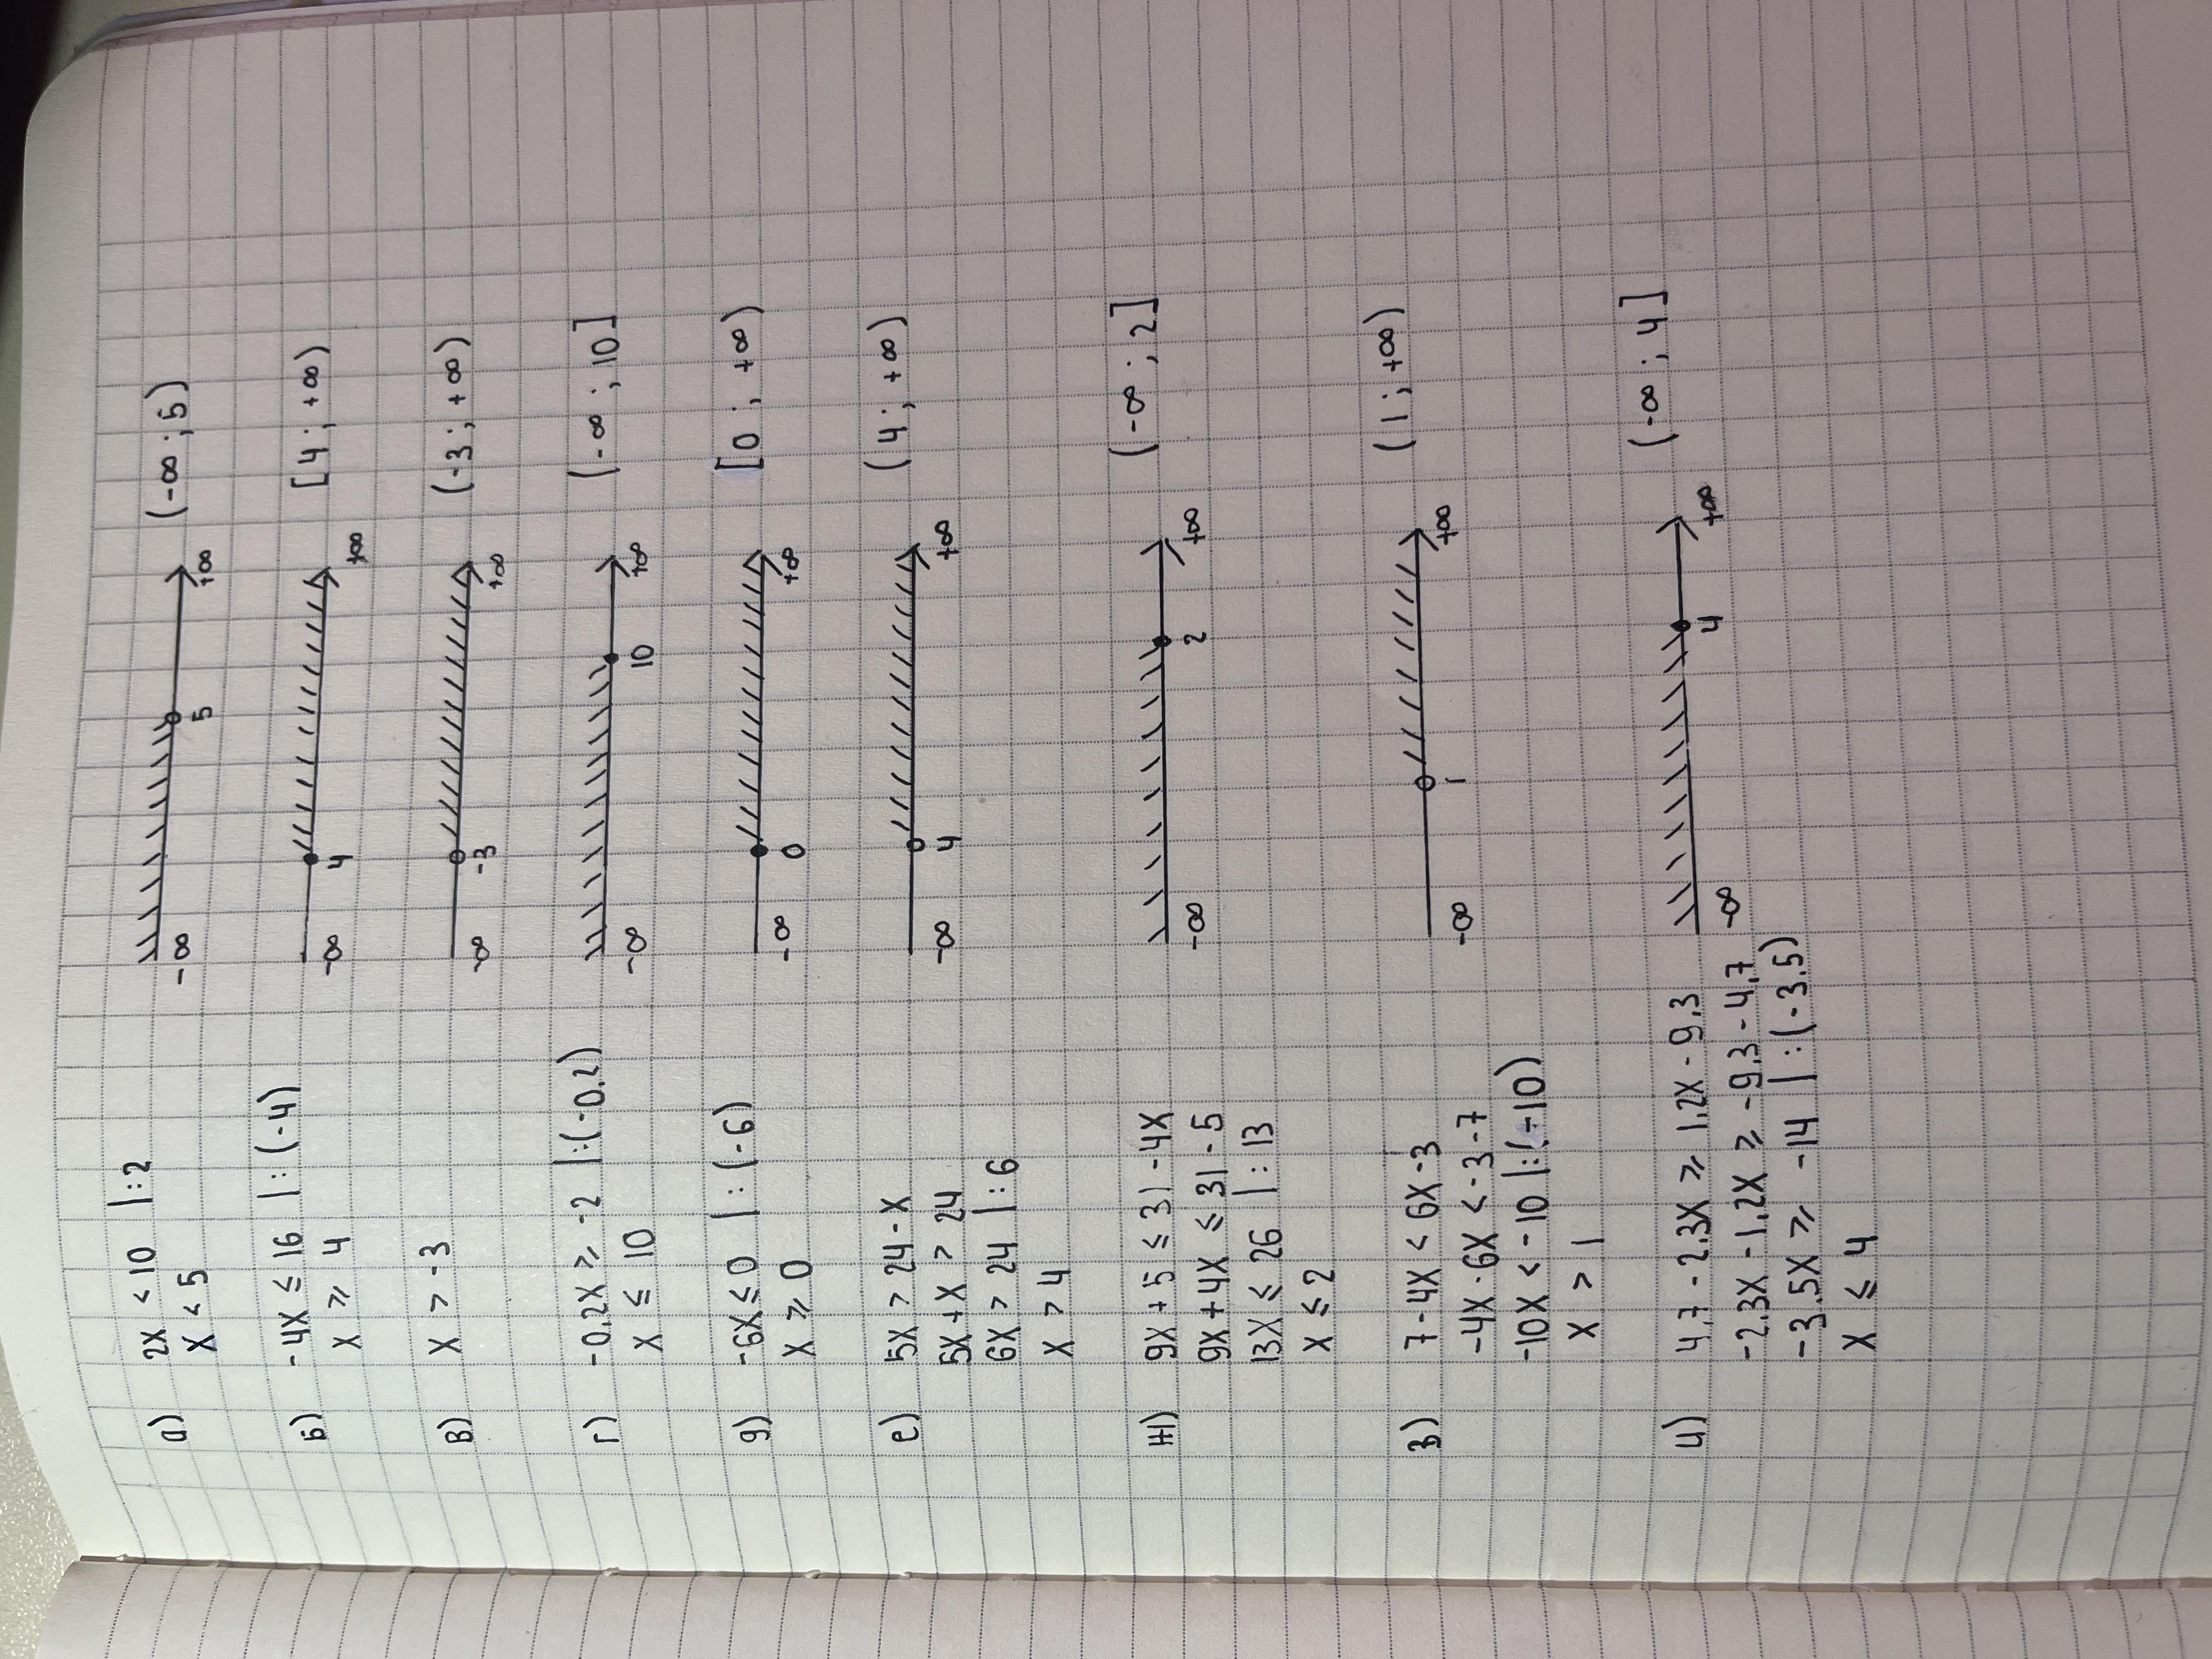 а) 2x < 10 |:2 (-∞ ; 5)
x < 5 -∞ 5 +∞
б) -4x ≤ 16 |:(-4) [4 ; +∞)
x ≥ 4 -∞ 4 +∞
в) x > -3 (-3 ; +∞)
-∞ -3 +∞
г) -0.2x ≥ -2 |:(-0.2) (-∞ ; 10]
x ≤ 10 -∞ 10 +∞
д) -6x ≤ 0 |:(-6) [0 ; +∞)
x ≥ 0 -∞ 0 +∞
е) 5x > 24 - x (4 ; +∞)
-∞ 4 +∞
5x + x > 24
6x > 24 |:6
x > 4
ж) 9x + 5 ≤ 31 - 4x (-∞ ; 2]
-∞ 2 +∞
9x + 4x ≤ 31 - 5
13x ≤ 26 |:13
x ≤ 2
з) 7 - 4x < 6x - 3 (1 ; +∞)
-∞ 1 +∞
-4x - 6x < -3 - 7
-10x < -10 |:(-10)
x > 1
и) 4,7 - 2.3x ≥ 1.2x - 9.3 (-∞ ; 4]
-∞ 4 +∞
-2.3x - 1.2x ≥ -9.3 - 4,7
-3.5x ≥ -14 |:(-3.5)
x ≤ 4